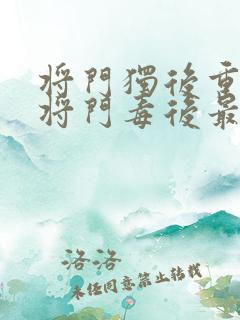 将門獨後重
将門毒後最
洛洛
未经同意禁止转载